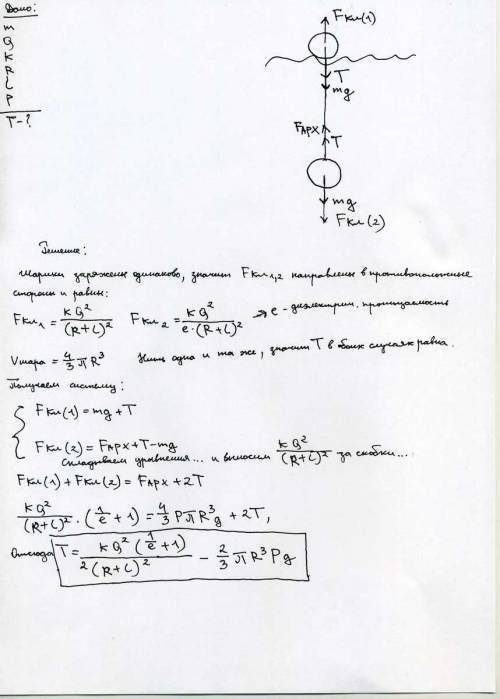 Дано:
m
Q
K
R
L
P
T-?
Fкл(1)
T
mg
Fарх
T
mg
Fкл(2)
Решение:
Шарики заряжены одинаково, значит Fкл1,2 направлены в противоположные
стороны и равны:
Fкл1 = kQ²/(R+L)² Fкл2 = kQ²/e·(R+L)² → e - диэлектрич. проницаемость
Vшара = 4/3 πR³ Нить одна и та же, значит T в обоих случаях равна.
Получаем систему:
{ Fкл(1) = mg + T
Fкл(2) = Fарх + T - mg
Складываем уравнения... и выносим kQ²/(R+L)² за скобки...
Fкл(1) + Fкл(2) = Fарх + 2T
kQ²/(R+L)² · (1/e + 1) = 4/3 PπR³g + 2T,
Отсюда T = kQ²(1/e + 1)/2(R+L)² - 2/3 πR³Pg